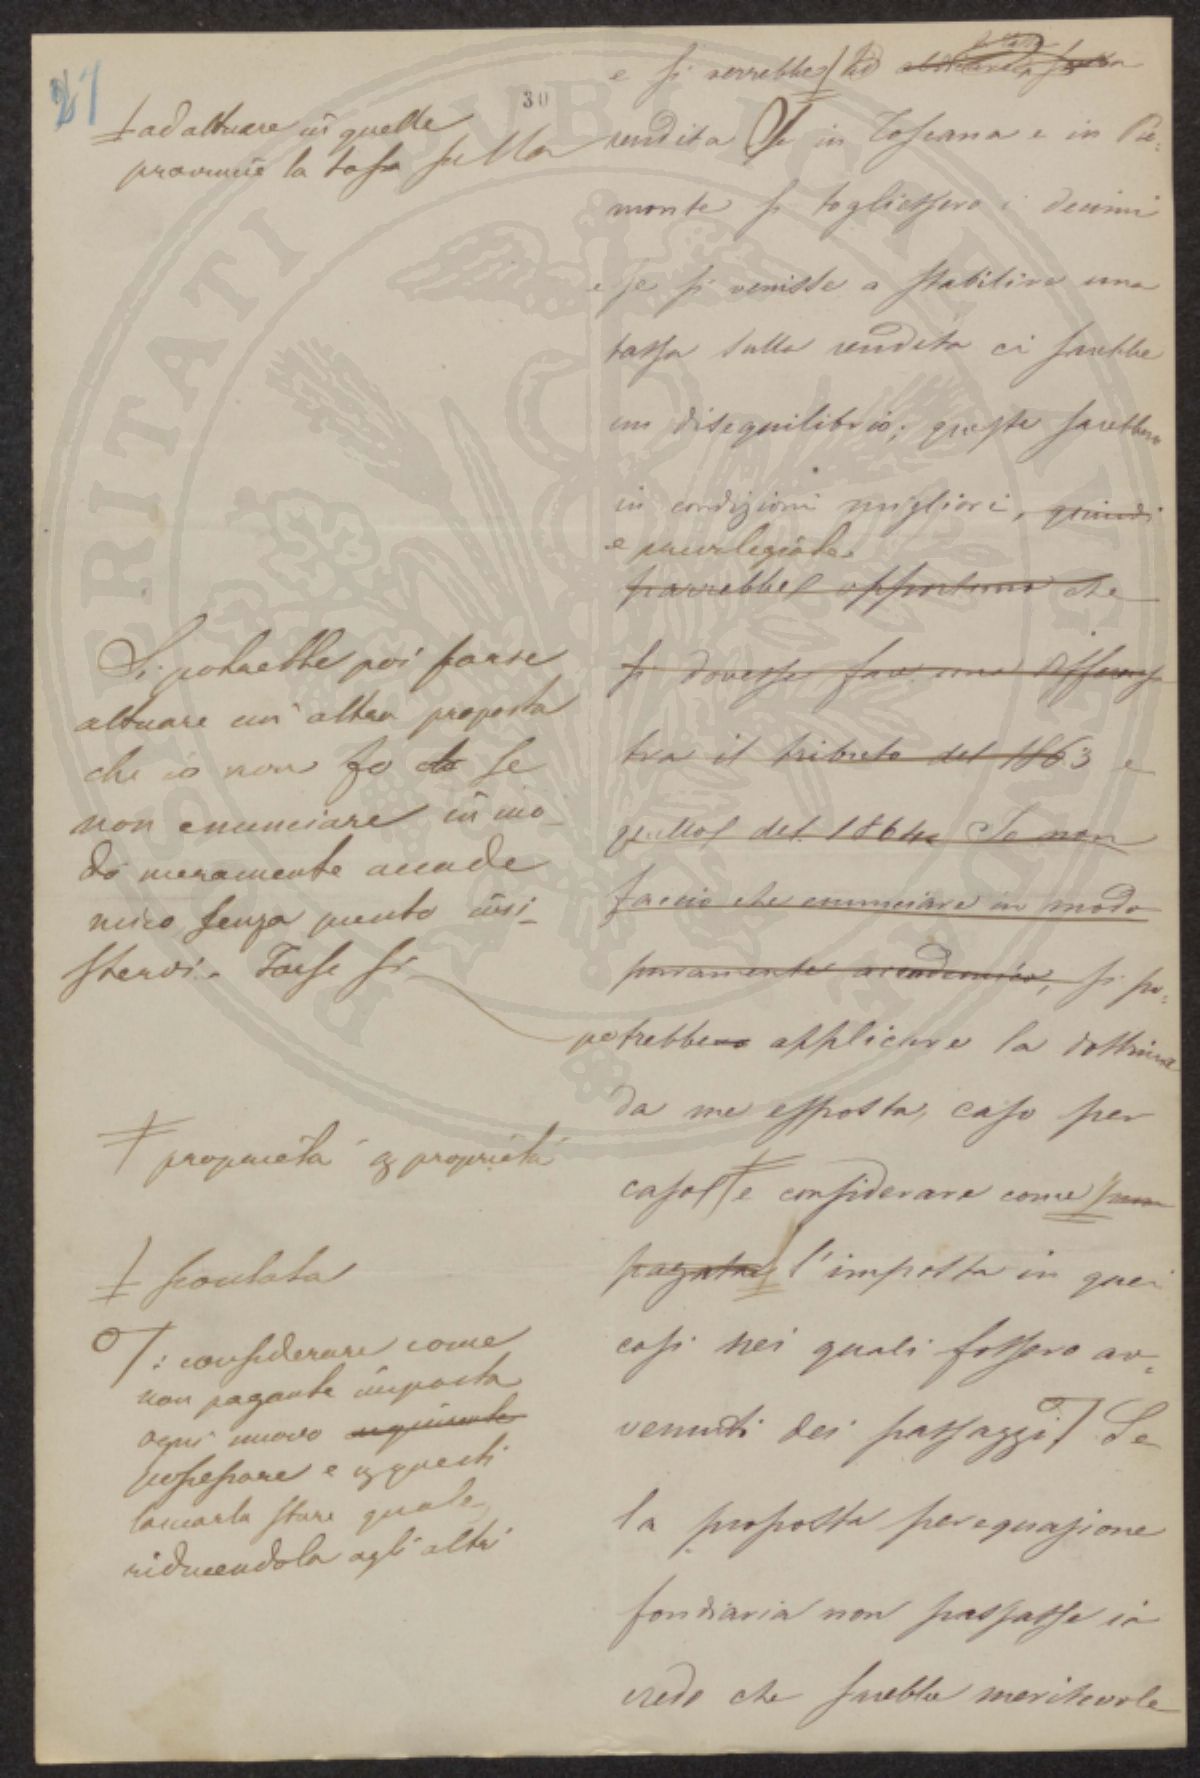 21
30
ad attuare in quelle
provincie la tassa sulla
e si verrebbe ad
rendita Se in Toscana e in Pie=
monte si togliessero i decimi
e se si venisse a stabilire una
tassa sulla rendita ci sarebbe
un disequilibrio; queste sarebbero
in condizioni migliori, quindi
e privilegiate
parrebbe opportuno che
si dovesse fare una differenza
tra il tributo del 1863 e
quello del 1864 Io non
faccio che enunciare in modo
puramente accademico, si po=
potrebbero applicare la dottrina
da me esposta, caso per
caso e considerare come
pagata l'imposta in quei
casi nei quali fossero av=
venuti dei passaggi Se
la proposta perequazione
fondiaria non passasse io
credo che sarebbe meritevole
Si potrebbe poi forse
attuare un'altra proposta
che io non fo che se
non enunciare in mo_
do meramente accade
mico senza punto insi_
stervi. Forse si
proprietà proprietà
scontata
: considerare come
non pagante imposta
ogni nuovo
possessore e questi
lasciarla stare quale,
riducendola agli altri